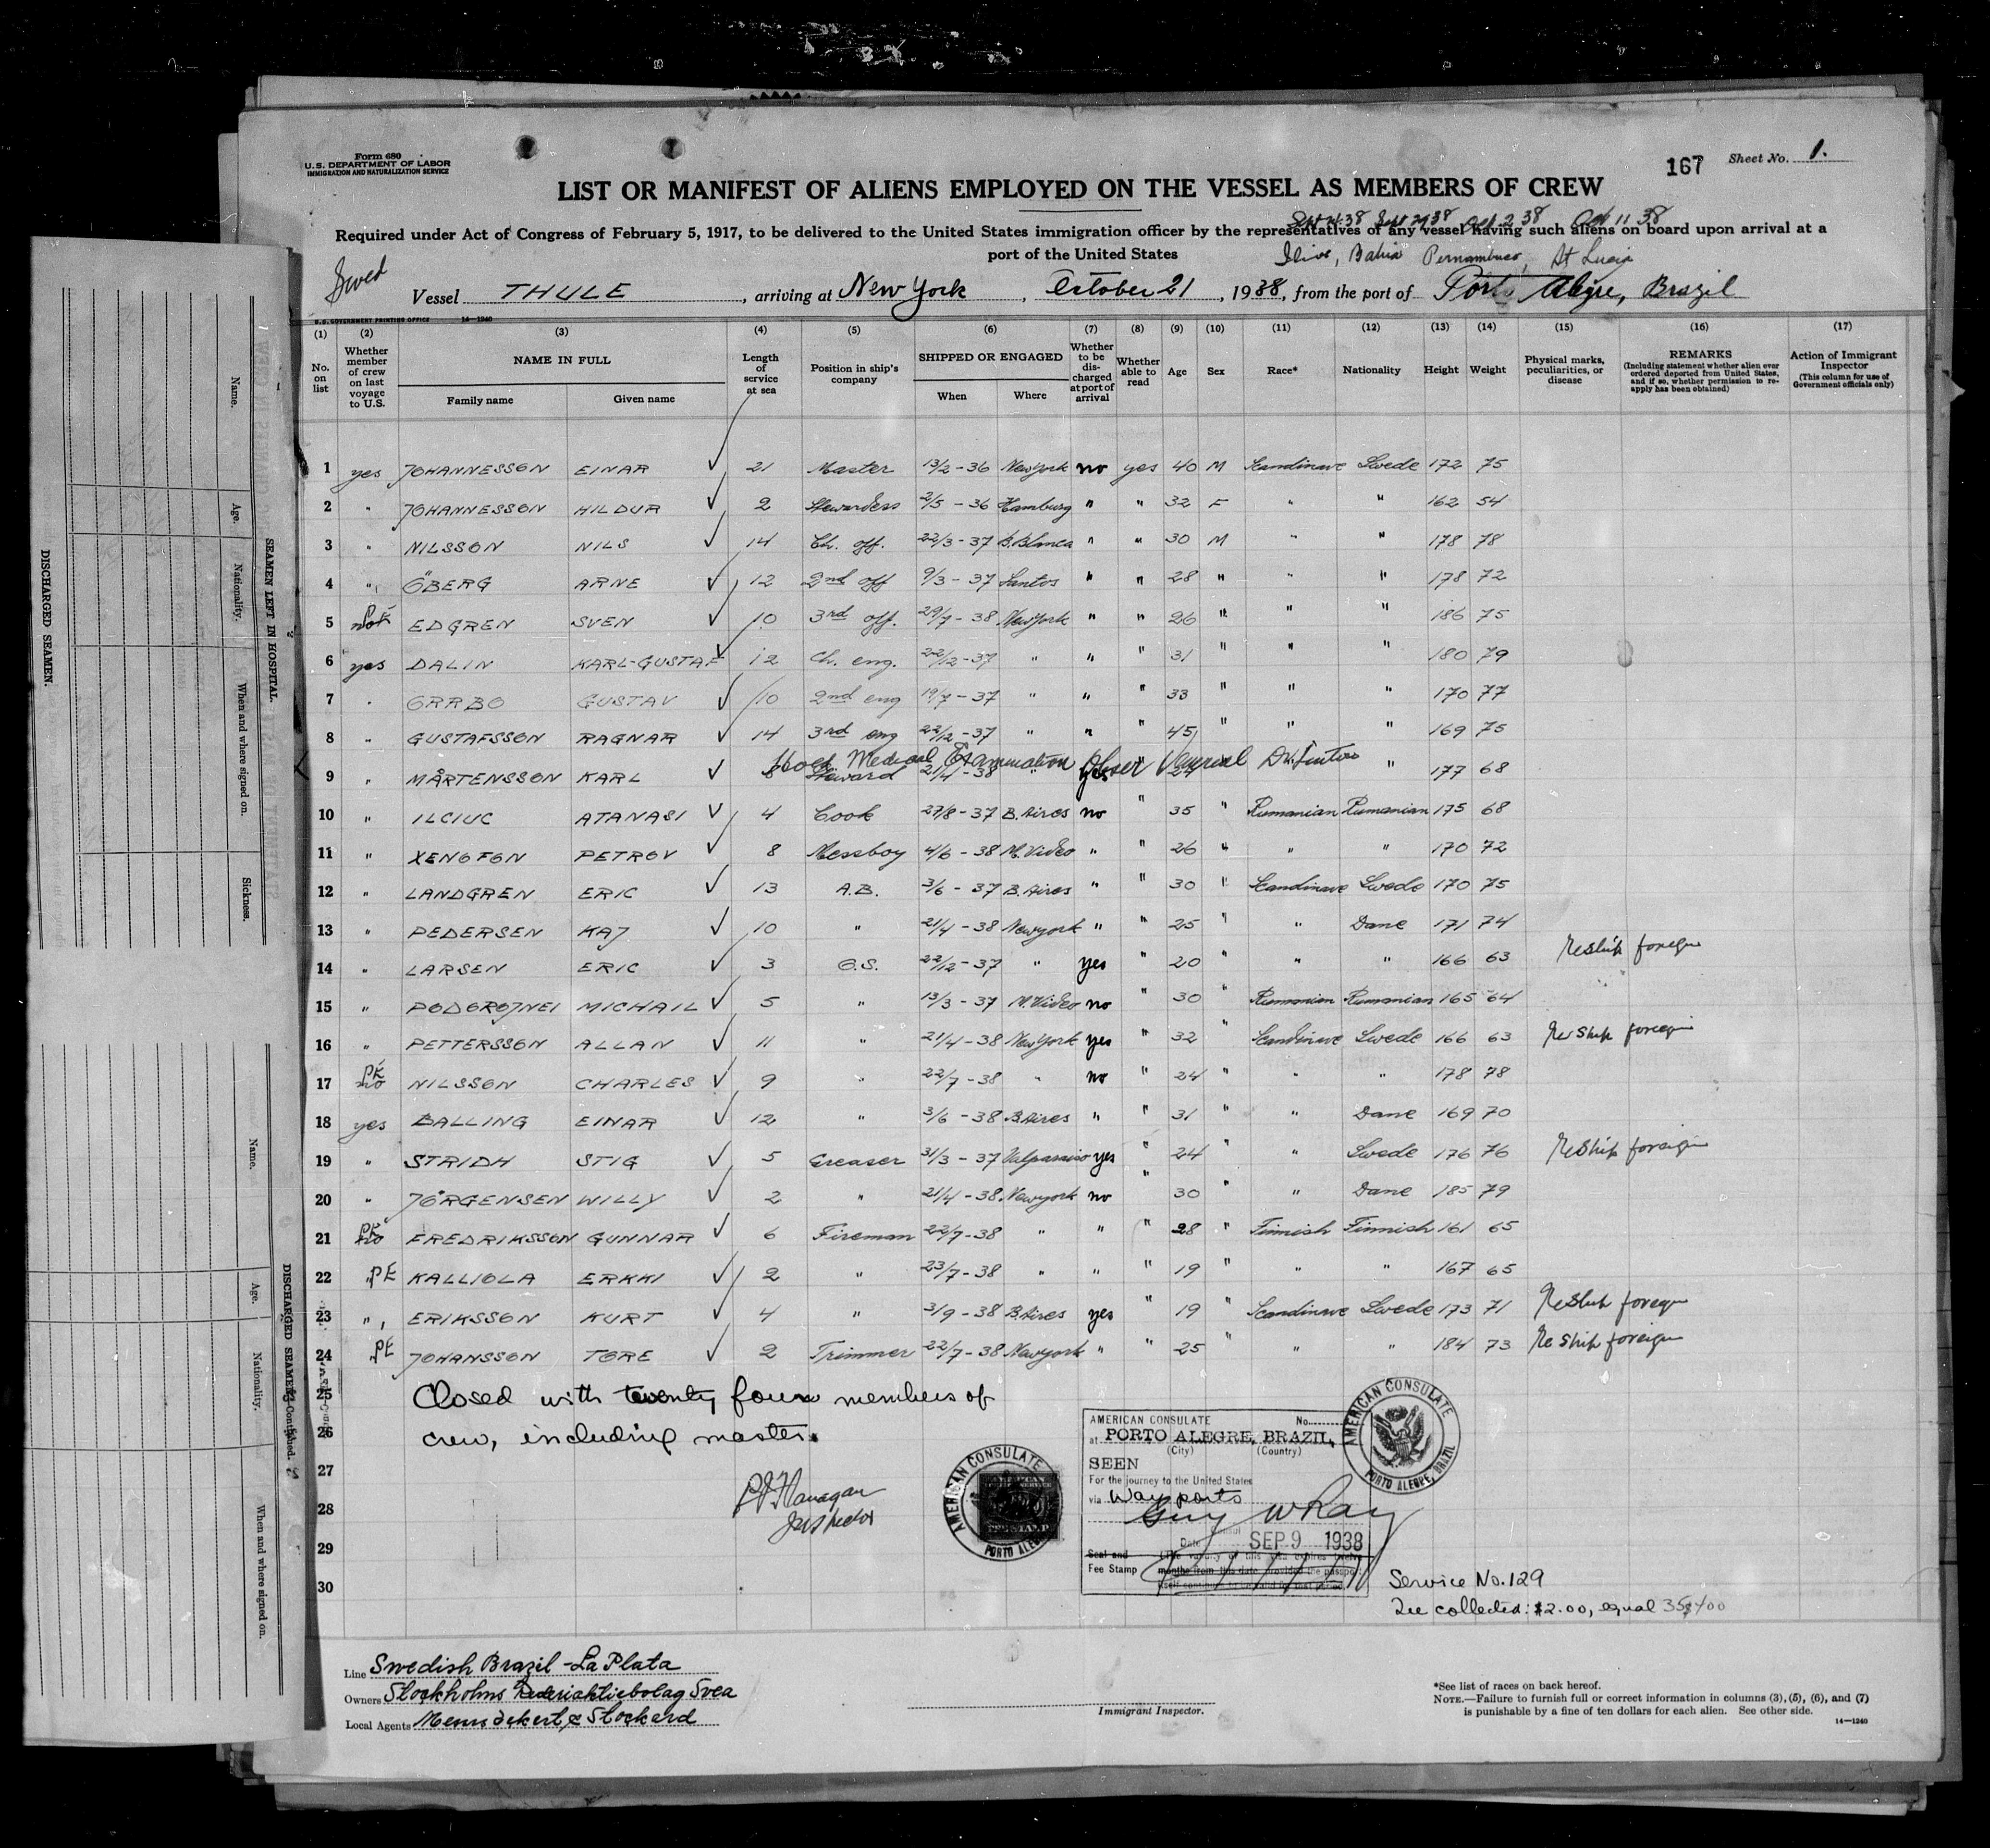 Form 680
U.S. DEPARTMENT OF LABOR
IMMIGRATION AND NATURALIZATION SERVICE
167 Sheet No. 1.
LIST OR MANIFEST OF ALIENS EMPLOYED ON THE VESSEL AS MEMBERS OF CREW
Sept 27 38 Oct 2 38 Oct 11 38
Required under Act of Congress of February 5, 1917, to be delivered to the United States immigration officer by the representatives of any vessel having such aliens on board upon arrival at a
port of the United States
Bahia Pernambuco, St Lucia
Swed
Vessel THULE, arriving at New York, October 21, 1938, from the port of Porto Alegre, Brazil
U.S. GOVERNMENT PRINTING OFFICE 14—1240
(1) (2) (3) (4) (5) (6) (7) (8) (9) (10) (11) (12) (13) (14) (15) (16) (17)
No. on list
Whether member of crew on last voyage to U.S.
NAME IN FULL
Family name Given name
Length of service at sea
Position in ship's company
SHIPPED OR ENGAGED
When Where
Whether to be discharged at port of arrival
Whether able to read
Age
Sex
Race*
Nationality
Height
Weight
Physical marks, peculiarities, or disease
REMARKS
(Including statement whether alien ever ordered deported from United States, and if so, whether permission to reapply has been obtained)
Action of Immigrant Inspector
(This column for use of Government officials only)
1 yes JOHANNESSON EINAR 21 Master 13/2-36 New York no yes 40 M Scandinave Swede 172 75
2 " JOHANNESSON HILDUR 2 Stewardess 2/5-36 Hamburg " " 32 F " " 162 54
3 " NILSSON NILS 14 Ch. off. 22/3-37 B.Blanca " " 30 M " " 178 78
4 " ÖBERG ARNE 12 2nd off 9/3-37 Santos " " 28 " " " 178 72
5 EDGREN SVEN 10 3rd off. 29/7-38 New York " " 26 " " " 186 75
6 yes DALIN KARL-GUSTAF 12 Ch. eng. 22/12-37 " " " 31 " " " 180 79
7 " ORRBO GUSTAV 10 2nd eng 19/7-37 " " " 33 " " " 170 77
8 " GUSTAFSSON RAGNAR 14 3rd eng 22/12-37 " " " 45 " " " 169 75
Hold Medical Examination
9 " MÅRTENSSON KARL Steward 21/4-38 " yes " " 177 68
10 " ILCIUC ATANASI 4 Cook 27/8-37 B.Aires no " 35 " Rumanian Rumanian 175 68
11 " XENOFON PETROV 8 Messboy 4/6-38 M.Video " " 26 " " " 170 72
12 " LANDGREN ERIC 13 A.B. 3/6-37 B.Aires " " 30 " Scandinave Swede 170 75
13 " PEDERSEN KAJ 10 " 21/4-38 New york " " 25 " " Dane 171 74
14 " LARSEN ERIC 3 O.S. 22/12-37 " yes " 20 " " " 166 63 Reship foreign
15 " PODGROJNEI MICHAIL 5 " 13/3-37 M.Video no " 30 " Rumanian Rumanian 165 64
16 " PETTERSSON ALLAN 11 " 21/4-38 New York yes " 32 " Scandinave Swede 166 63 Reship foreign
17 PE no NILSSON CHARLES 9 " 22/7-38 " no " 24 " " " 178 78
18 yes BALLING EINAR 12 " 3/6-38 B.Aires " " 31 " " Dane 169 70
19 " STRIDH STIG 5 Greaser 31/3-37 Valparaiso yes " 24 " " Swede 176 76 Reship foreign
20 " JÖRGENSEN WILLY 2 " 21/4-38 New york no " 30 " " Dane 185 79
21 PE no FREDRIKSSON GUNNAR 6 Fireman 22/7-38 " " " 28 " Finnish Finnish 161 65
22 " PE KALLIOLA ERKKI 2 " 23/7-38 " " " 19 " " " 167 65
23 " ERIKSSON KURT 4 " 3/9-38 B.Aires yes " 19 " Scandinave Swede 173 71 Reship foreign
24 PE JOHANSSON TORE 2 Trimmer 22/7-38 New york " " 25 " " " 184 73 Reship foreign
25 Closed with twenty four members of
26 crew, including master.
27
28
29
30
P J Flanagan
Inspector
AMERICAN CONSULATE
PORTO ALEGRE
AMERICAN CONSULATE No.
at PORTO ALEGRE, BRAZIL,
(City) (Country)
SEEN
For the journey to the United States
via Way ports
Guy W Ray
Date SEP 9 1938
Seal and
Fee Stamp
AMERICAN CONSULATE
PORTO ALEGRE, BRAZIL
Service No. 129
Fee collected: $2.00, equal
Line Swedish Brazil-La Plata
Owners Stockholms Rederiaktiebolag Svea
Local Agents
Immigrant Inspector.
*See list of races on back hereof.
NOTE.—Failure to furnish full or correct information in columns (3), (5), (6), and (7)
is punishable by a fine of ten dollars for each alien. See other side.
14—1240
DISCHARGED SEAMEN.
SEAMEN LEFT IN HOSPITAL.
Name.
Age.
Nationality.
When and where signed on.
Sickness.
DISCHARGED SEAMEN—Continued.
Name.
Age.
Nationality.
When and where signed on.